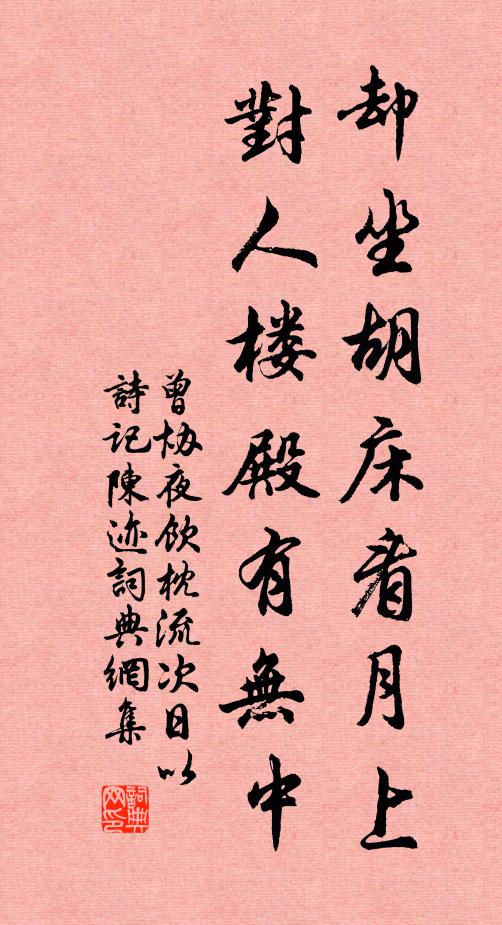 却坐胡床看月上
對人楼殿有無中
曾協夜飲枕流次日以
詩记陳迹詞典網集
詞典网印